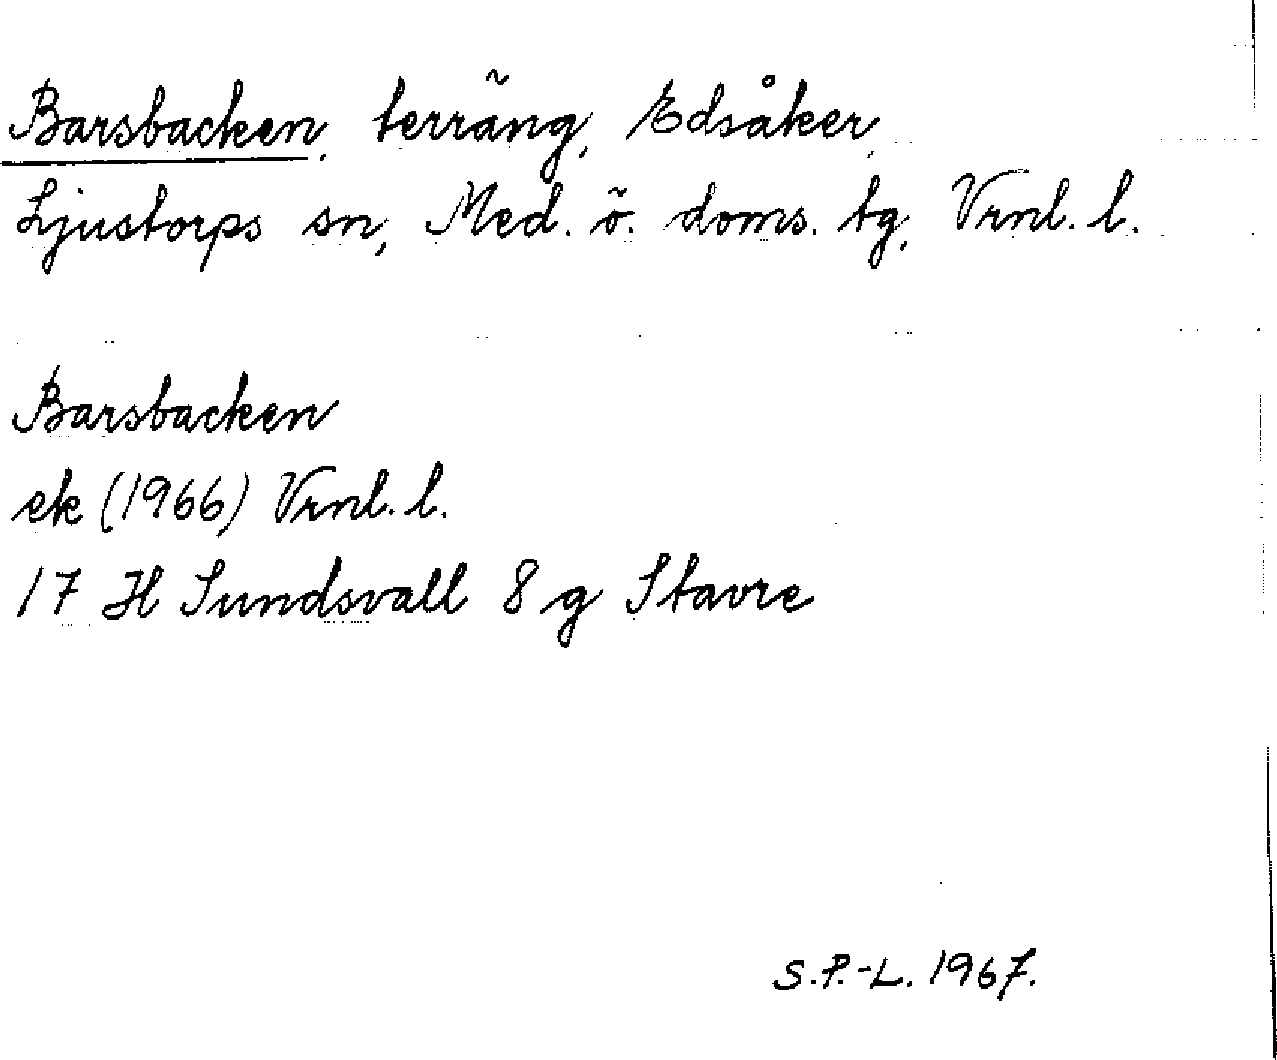 Barsbacken, terräng, Edsåker,
Ljustorps sn, Med. ö. doms. tg, Vrnl. l.
Barsbacken
ek (1966) Vrnl. l.
17 H Sundsvall 8 g Stavre
S.P.-L. 1967.